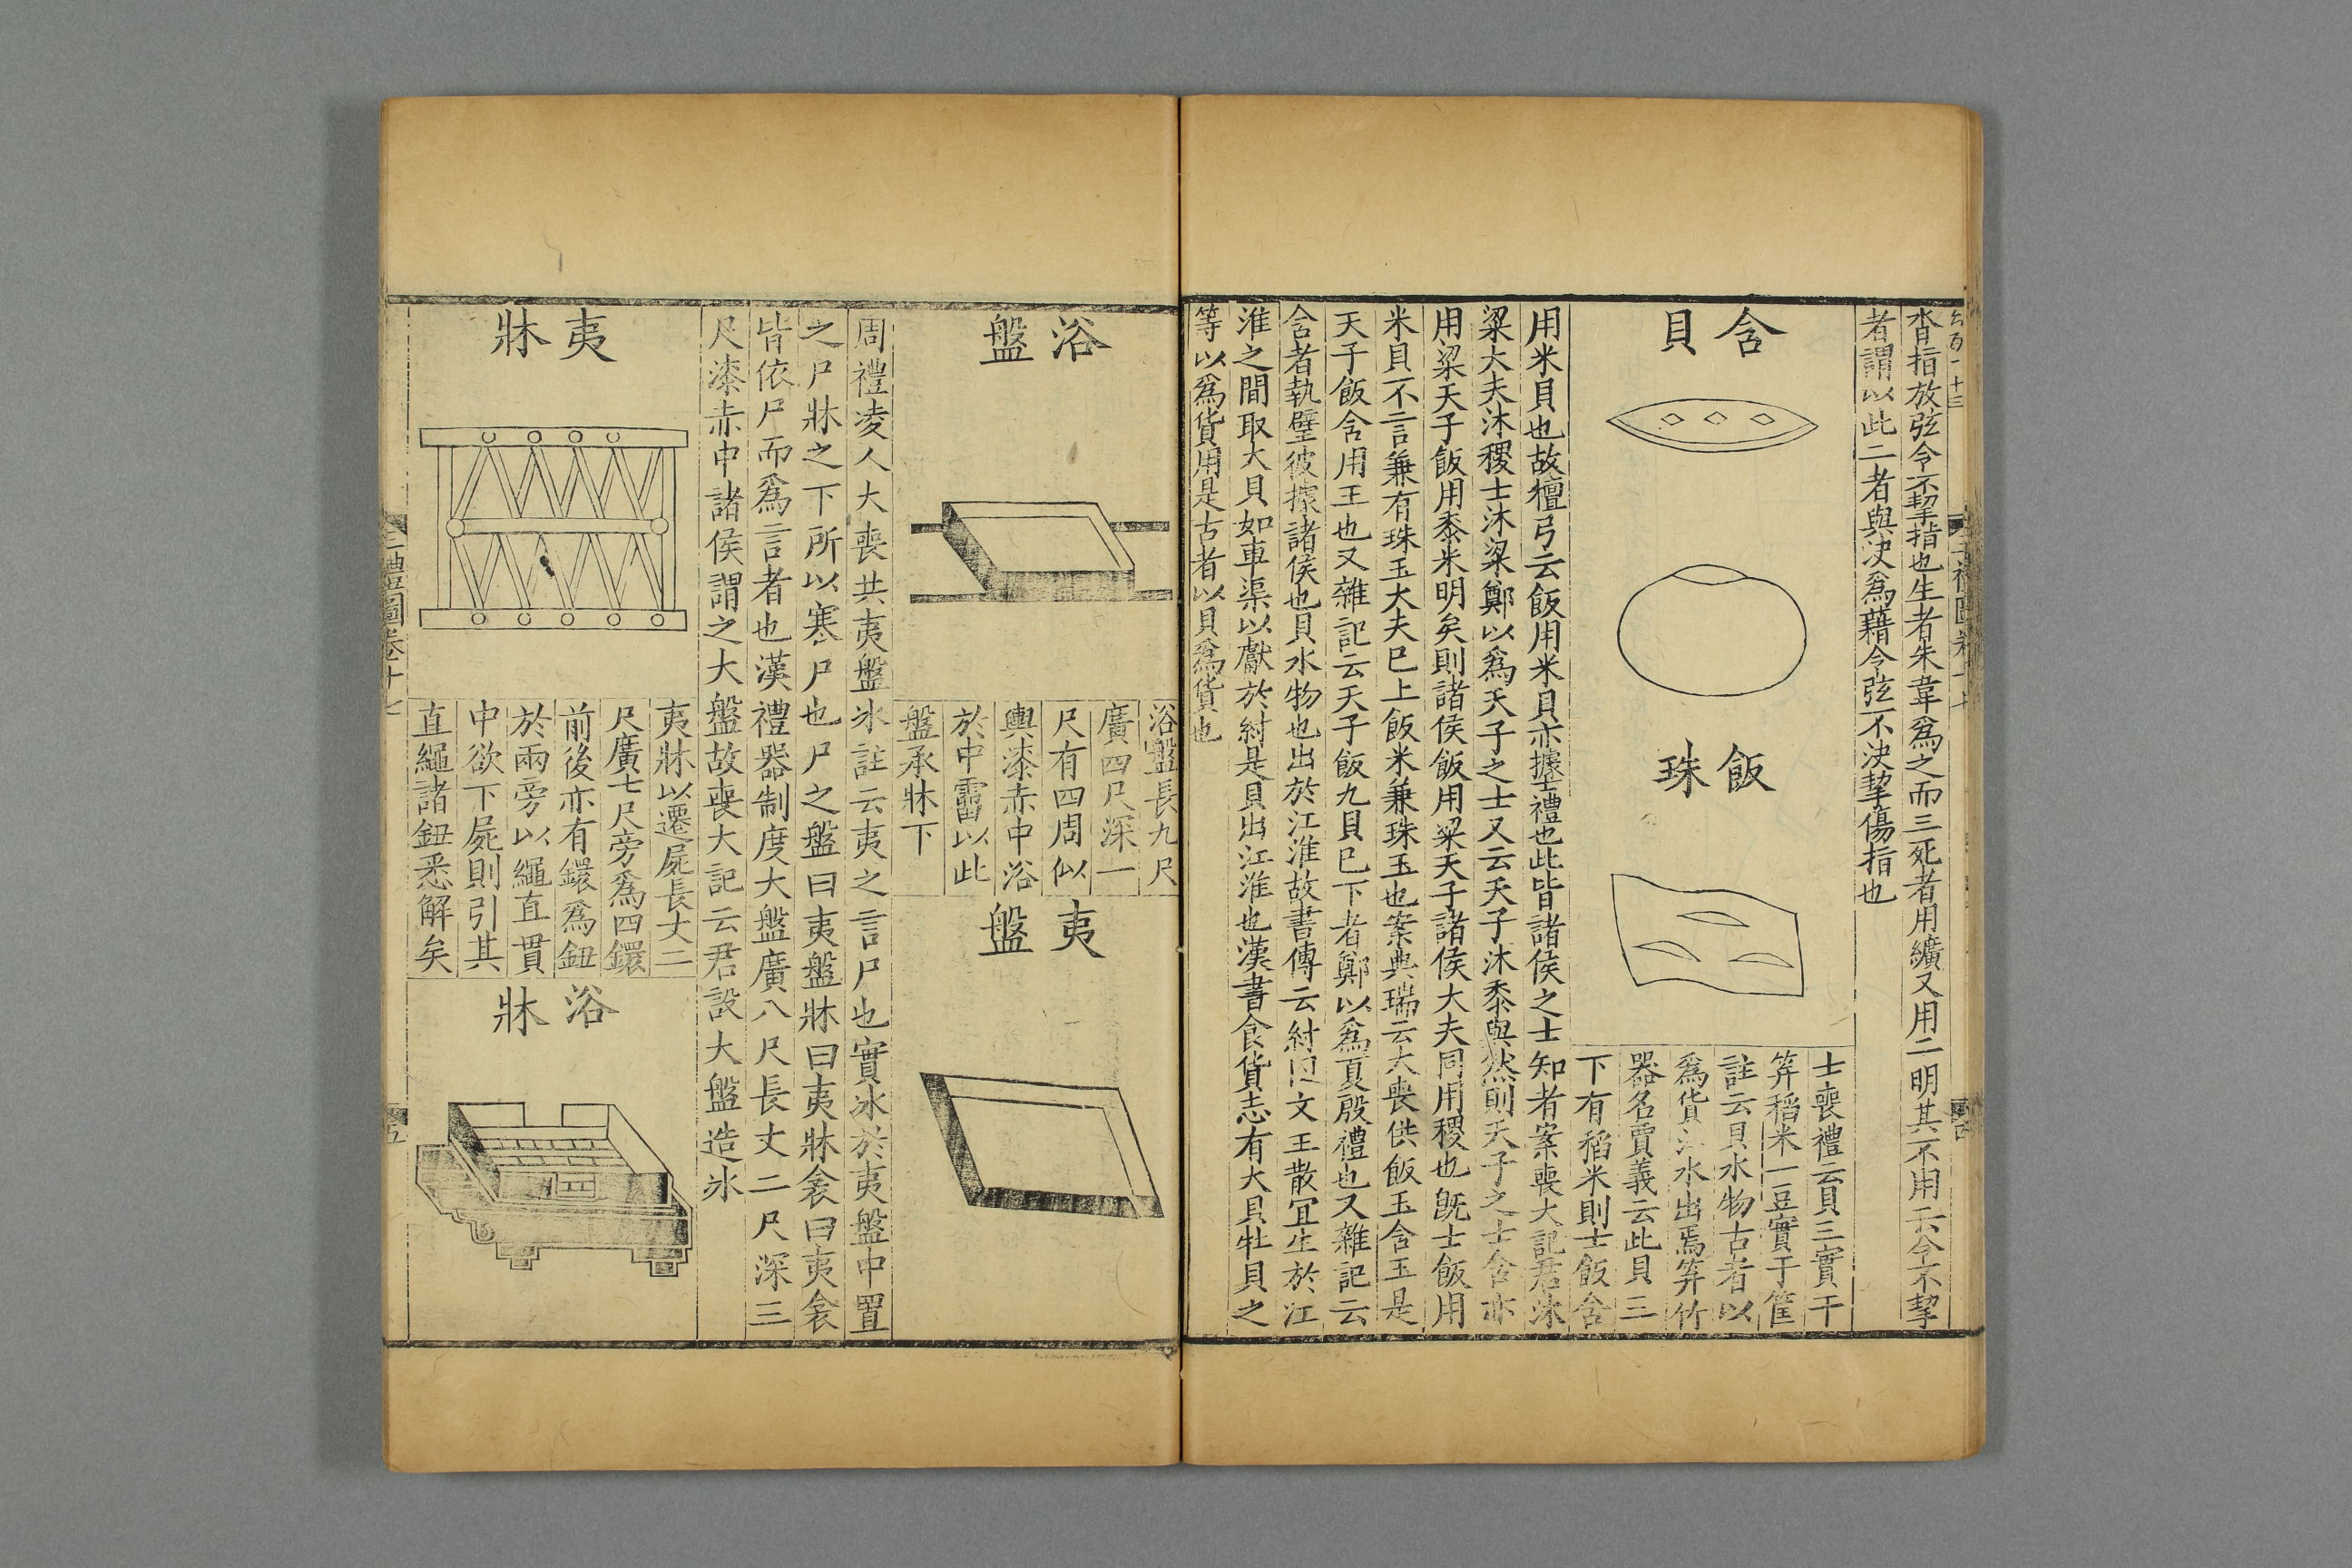 沓指放弦令不挈指也生者朱韋爲之而三死者用纊又用二明其不用云令不挈
者謂以此二者與決爲藉令弦不決挈傷指也
含貝
飯珠
士喪禮云貝三實于
笲稻米一豆實于筐
註云貝水物古者以
爲貨水出焉笲竹
器名賈義云此貝三
下有稻米則士飯含
用米貝也故檀弓云飯用米貝亦據士禮也此皆諸侯之士知者案喪大記君沐
粱大夫沐稷士沐粱鄭以爲天子之士又云天子沐黍與然則天子之士含亦
用粱天子飯用黍米明矣則諸侯飯用粱天子諸侯大夫同用稷也旣士飯用
米貝不言兼有珠玉大夫巳上飯米兼珠玉也案典瑞云大喪供飯玉含玉是
天子飯含用玉也又雜記云天子飯九貝巳下者鄭以爲夏殷禮也又雜記云
含者執璧彼據諸侯也貝水物也出於江淮故書傳云紂囚文王散宜生於江
淮之間取大貝如車渠以獻於紂是貝出江淮也漢書食貨志有大貝牡貝之
等以爲貨用是古者以貝爲貨也
浴盤
浴盤長九尺
廣四尺深一
尺有四周似
輿漆赤中浴
於中霤以此
盤承牀下
夷盤
周禮凌人大喪共夷盤冰註云夷之言尸也實冰於夷盤中置
之尸牀之下所以寒尸也尸之盤曰夷盤牀曰夷牀衾曰夷衾
皆依尸而爲言者也漢禮器制度大盤廣八尺長丈二尺深三
尺漆赤中諸侯謂之大盤故喪大記云君設大盤造冰
夷牀
夷牀以遷屍長丈二
尺廣七尺旁爲四鐶
前後亦有鐶爲鈕
於兩旁以繩直貫
中欲下屍則引其
直繩諸鈕悉解矣
浴牀
三禮圖卷十七
五